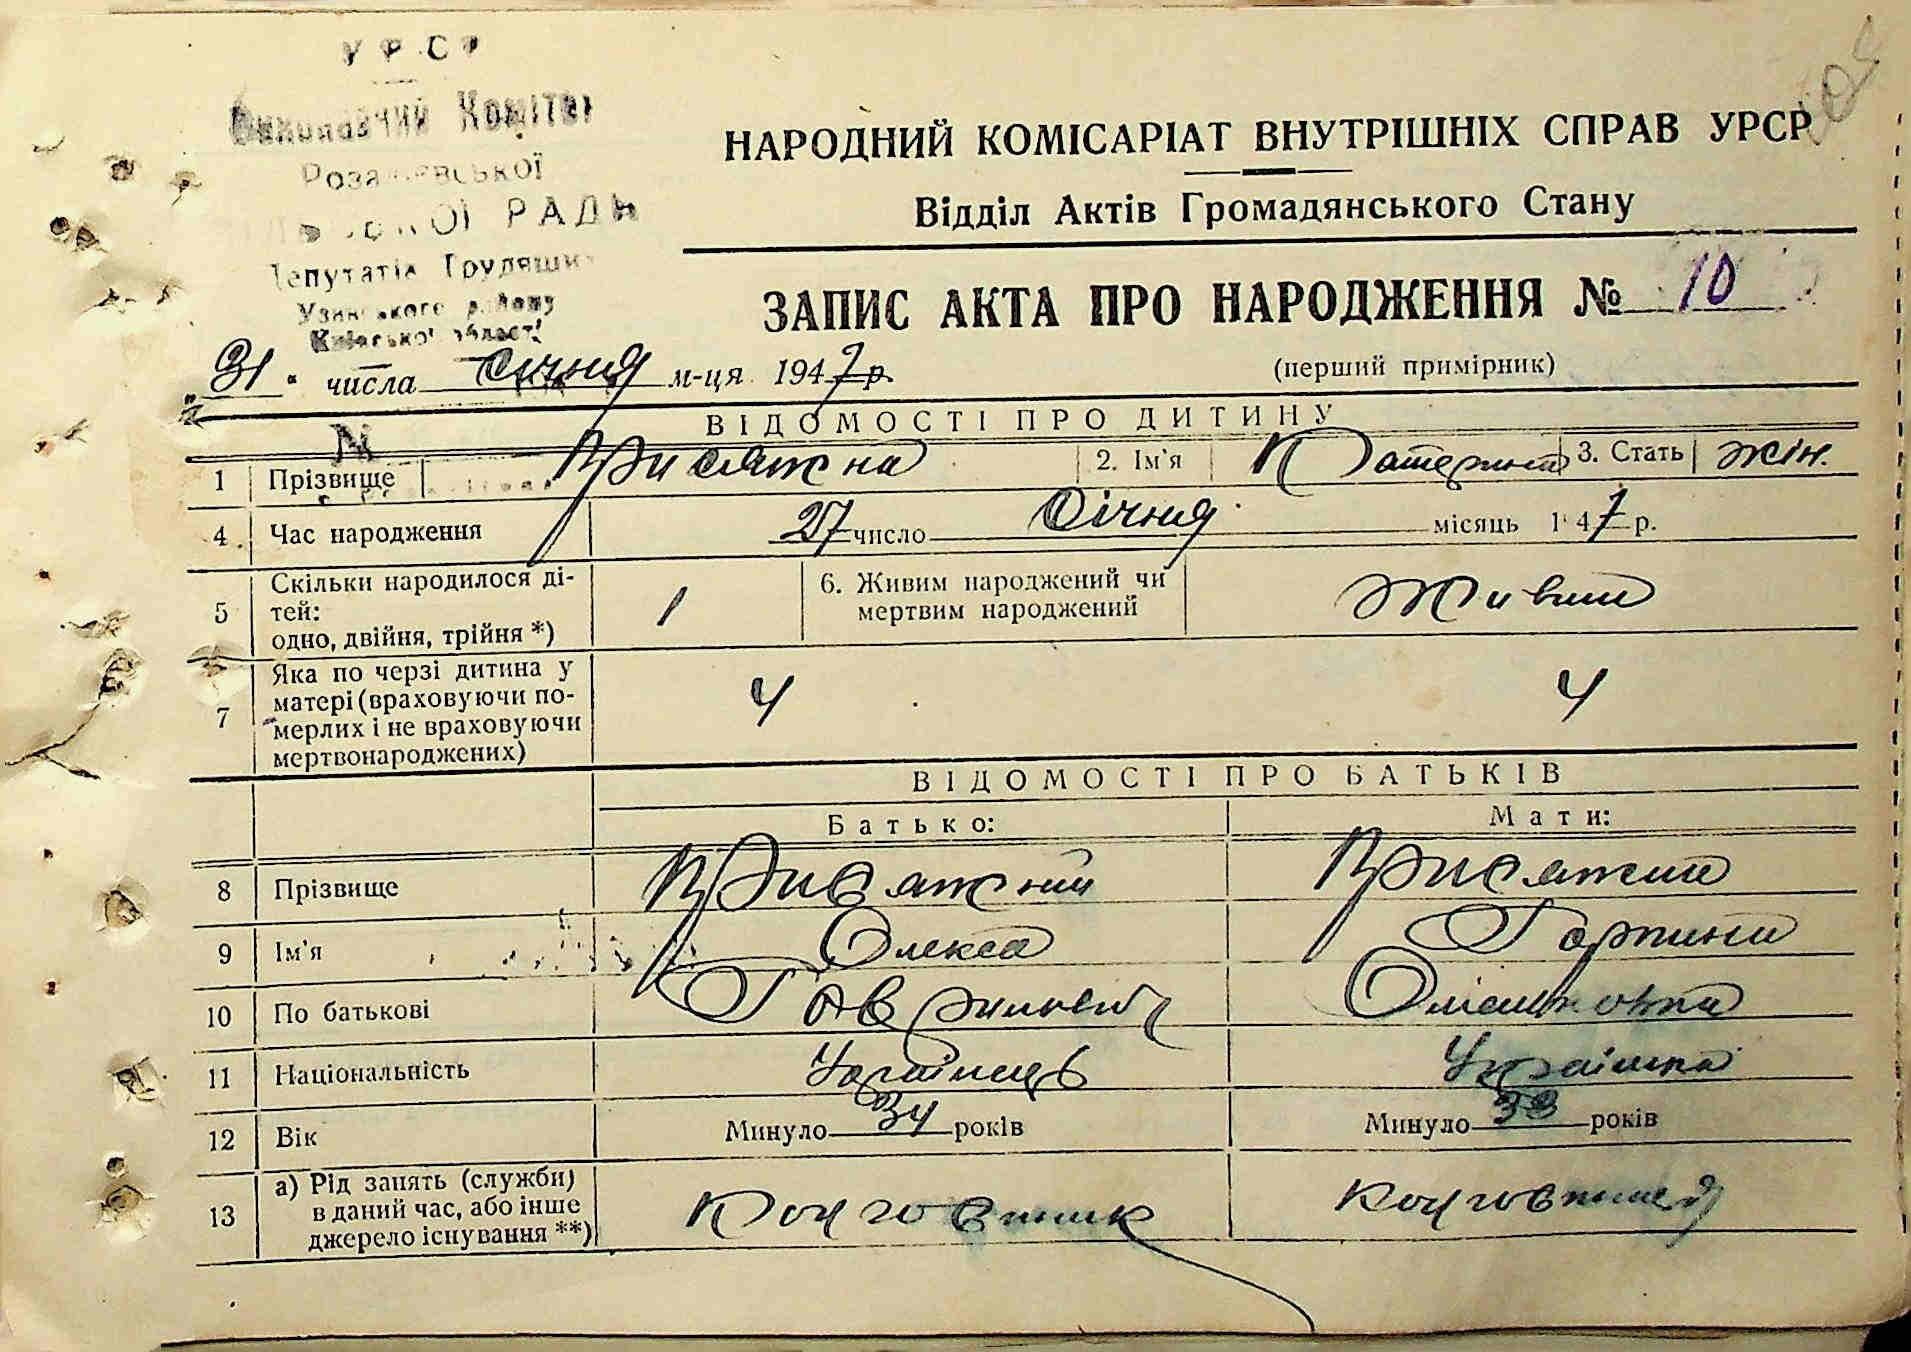 УРСР
Виконавчий Комітет
РАДИ
Депутатів Трудящих
Узинського району
Київської області
105
НАРОДНИЙ КОМІСАРІАТ ВНУТРІШНІХ СПРАВ УРСР
Відділ Актів Громадянського Стану
ЗАПИС АКТА ПРО НАРОДЖЕННЯ № 10
(перший примірник)
„31" числа січня м-ця 1947 р.
ВІДОМОСТІ ПРО ДИТИНУ
1 Прізвище Присяжна 2. Ім'я Катерина 3. Стать жін.
4 Час народження 27 число Січня місяць 1947 р.
5 Скільки народилося ді-
тей:
одно, двійня, трійня *) 1 6. Живим народжений чи
мертвим народжений Живим
7 Яка по черзі дитина у
матері (враховуючи по-
мерлих і не враховуючи
мертвонароджених) 4 4
ВІДОМОСТІ ПРО БАТЬКІВ
Батько: Мати:
8 Прізвище Присяжний Присяжна
9 Ім'я Олекса Горпина
10 По батькові Гаврилович
11 Національність Українець Українка
12 Вік Минуло 34 років Минуло 33 років
13 а) Рід занять (служби)
в даний час, або інше
джерело існування **) Колговпник